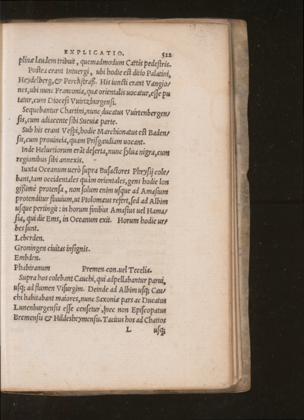 EXPLICATIO. 522
plinæ laudem tribuit, quemadmodum Cattis pedestris.
Postea erant Intuergi, ubi hodie est ditio Palatini,
Heydelberg, & Perchstraß. His iuncti erant Vangio-
nes, ubi nunc Franconia, quæ orientalis uocatur, esse pu
tatur, cum Diocesi Vuirtzburgensi.
Sequebantur Charitini, nunc ducatus Vuirtenbergen-
sis, cum adiacente sibi Sueuiæ parte.
Sub his erant Vespi, hodie Marchionatus est Baden-
sis, cum prouincia, quam Prisgaudiam uocant.
Inde Heluetiorum erat deserta, nunc sylua nigra, cum
regionibus sibi annexis.
Iuxta Oceanum uerò supra Busactores Phrysij cole-
bant, tam occidentales quàm orientales, gens hodie lon
gissimè protensa, non solum enim usque ad Amasium
protenditur fluuium, ut Ptolomæus refert, sed ad Albim
usque pertingit: in horum finibus Amasius uel Hama-
sia, qui die Ems, in Oceanum exit. Horum hodie ur-
bes sunt.
Leberden.
Groningen ciuitas insignis.
Embden.
Phabiranum Premen. con. uel Tecelia.
Supra hos colebant Cauchi, qui adpellabantur parui,
usq; ad flumen Visurgim. Deinde ad Albim usq; Cau
chi habitabant maiores, nunc Saxoniæ pars ac Ducatus
Lunenburgensis esse censetur, nec non Episcopatus
Bremensis & Hildesbrymensis. Tacitus hos ad Chattos
L usq;